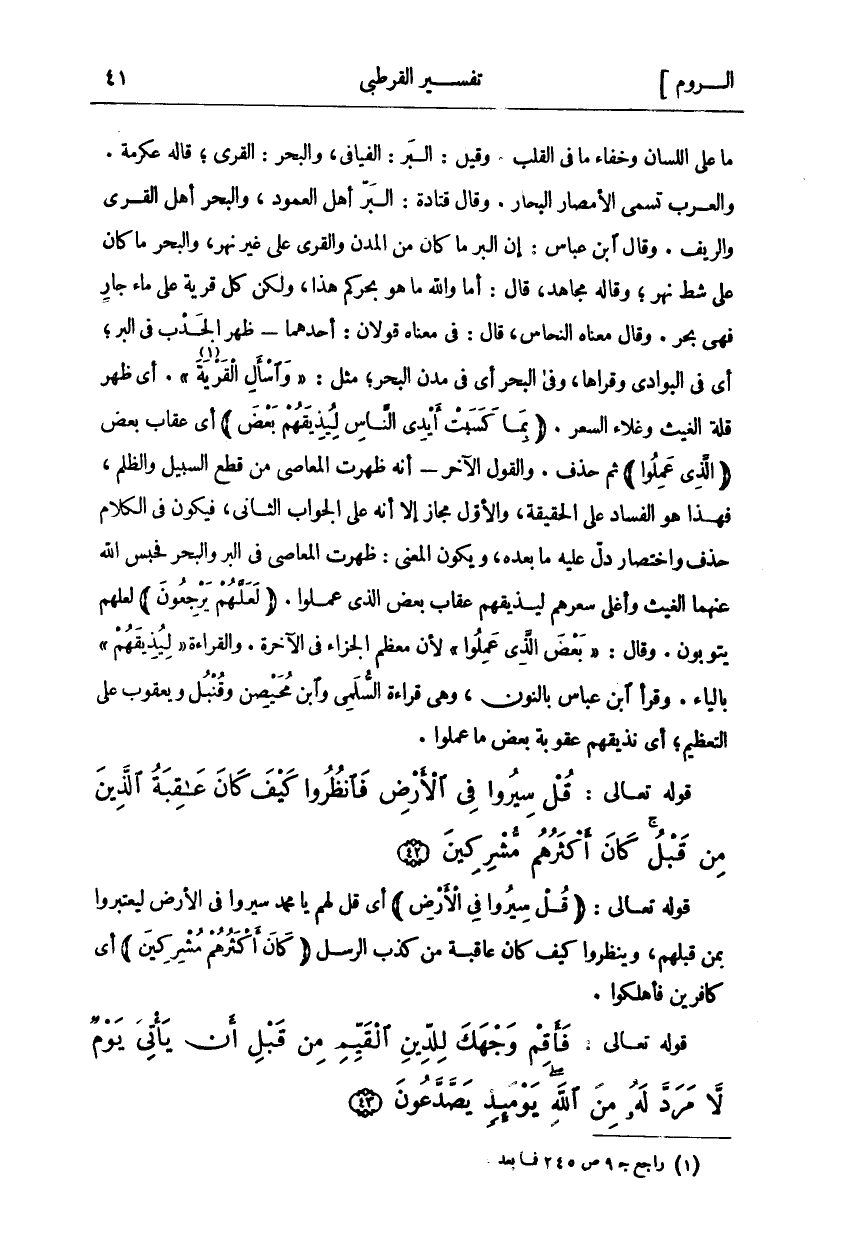 الـــروم ] تفســـير القرطبى ٤١
ما على اللسان وخفاء ما فى القلب . وقيل : البَر : الفيافى، والبحر : القرى ؛ قاله عكرمة .
والعــرب تسمى الأمصار البحار . وقال قتادة : البَرّ أهل العمود ، والبحر أهل القــرى
والريف . وقال ٱبن عباس : إن البر ما كان من المدن والقرى على غير نهر، والبحر ما كان
على شط نهر ؛ وقاله مجاهد، قال : أما والله ما هو بحركم هذا، ولكن كل قرية على ماء جارٍ
فهى بحر . وقال معناه النحاس، قال : فى معناه قولان : أحدهما – ظهر الجَدْب فى البر ؛
أى فى البوادى وقراها، وفى البحر أى فى مدن البحر؛ مثل : « وَٱسْأَلِ الْقَرْيَةَ (١) » . أى ظهر
قلة الغيث وغلاء السعر . ﴿ بِمَـا كَسَبَتْ أَيْدِى النَّاسِ لِيُذِيقَهُمْ بَعْضَ ﴾ أى عقاب بعض
﴿ الَّذِى عَمِلُوا ﴾ ثم حذف . والقول الآخر – أنه ظهرت المعاصى من قطع السبيل والظلم ،
فهــذا هو الفساد على الحقيقة، والأوّل مجاز إلا أنه على الجواب الثـانى، فيكون فى الكلام
حذف واختصار دلّ عليه ما بعده، ويكون المعنى : ظهرت المعاصى فى البر والبحر فحبس الله
عنهما الغيث وأغلى سعرهم ليــذيقهم عقاب بعض الذى عمــلوا . ﴿ لَعَلَّهُمْ يَرْجِعُونَ ﴾ لعلهم
يتوبون . وقال : « بَعْضَ الَّذِى عَمِلُوا » لأن معظم الجزاء فى الآخرة . والقراءة « لِيُذِيقَهُمْ »
بالياء . وقرأ ٱبن عباس بالنون ، وهى قراءة السُّلَمِى وٱبن مُحَيْصِن وقُنْبُل ويعقوب على
التعظيم؛ أى نذيقهم عقوبة بعض ما عملوا .
قوله تعـالى : قُلْ سِيرُوا فِى ٱلْأَرْضِ فَٱنظُرُوا كَيْفَ كَانَ عَـٰقِبَةُ ٱلَّذِينَ
مِن قَبْلُ ۚ كَانَ أَكْثَرُهُم مُّشْرِكِينَ ﴿٤٢﴾
قوله تعـالى : ﴿ قُـلْ سِيرُوا فِى الْأَرْضِ ﴾ أى قل لهم يا محمد سيروا فى الأرض ليعتبروا
بمن قبلهم، وينظروا كيف كان عاقبــة من كذب الرســل ﴿ كَانَ أَكْثَرُهُمْ مُشْرِكِينَ ﴾ أى
كافرين فأهلكوا .
قوله تعـالى : فَأَقِمْ وَجْهَكَ لِلدِّينِ ٱلْقَيِّمِ مِن قَبْلِ أَن يَأْتِىَ يَوْمٌ
لَّا مَرَدَّ لَهُۥ مِنَ ٱللَّهِ ۖ يَوْمَئِذٍ يَصَّدَّعُونَ ﴿٤٣﴾
(١) راجع جـ ٩ ص ٢٤٥ فـا بعد .